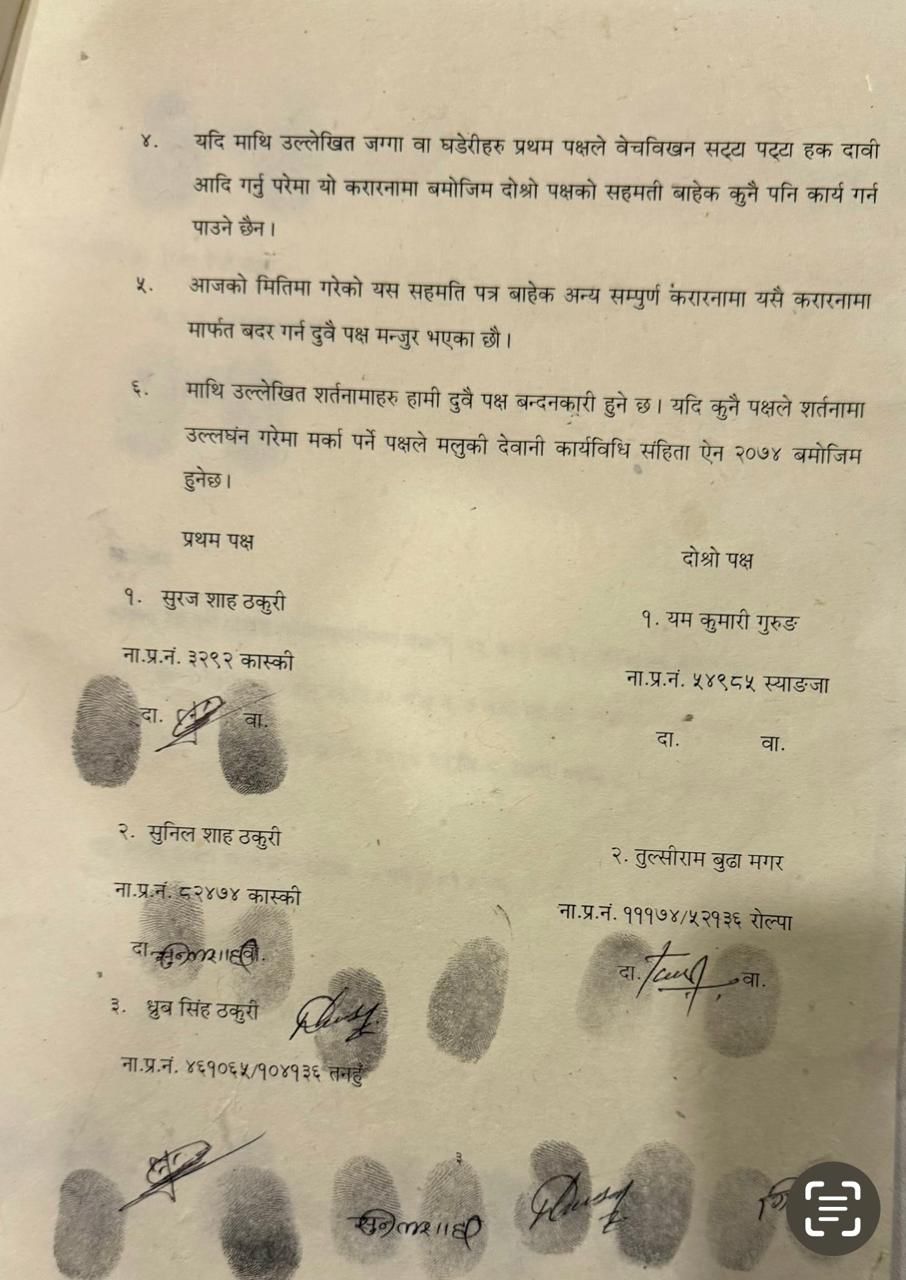 ४. यदि माथि उल्लेखित जग्गा वा घडेरीहरु प्रथम पक्षले वेचविखन सट्टा पट्टा हक दावी
आदि गर्नु परेमा यो करारनामा बमोजिम दोश्रो पक्षको सहमती बाहेक कुनै पनि कार्य गर्न
पाउने छैन।
५. आजको मितिमा गरेको यस सहमति पत्र बाहेक अन्य सम्पुर्ण करारनामा यसै करारनामा
मार्फत बदर गर्न दुवै पक्ष मन्जुर भएका छौ।
६. माथि उल्लेखित शर्तनामाहरु हामी दुवै पक्ष बन्दनकारी हुने छ। यदि कुनै पक्षले शर्तनामा
उल्लघंन गरेमा मर्का पर्ने पक्षले मलुकी देवानी कार्यविधि संहिता ऐन २०७४ बमोजिम
हुनेछ।
प्रथम पक्ष
१. सुरज शाह ठकुरी
ना.प्र.नं. ३२९२ कास्की
दा. वा.
२. सुनिल शाह ठकुरी
ना.प्र.नं. ८२४७४ कास्की
दा. सुनिल शाही वा.
३. ध्रुब सिंह ठकुरी
ना.प्र.नं. ४६१०६५/१०४१३६ तनहुँ
दोश्रो पक्ष
१. यम कुमारी गुरुङ
ना.प्र.नं. ५४९८५ स्याङजा
दा. वा.
२. तुल्सीराम बुढा मगर
ना.प्र.नं. १११७४/५२१३६ रोल्पा
दा. वा.
३
सुनिल शाही